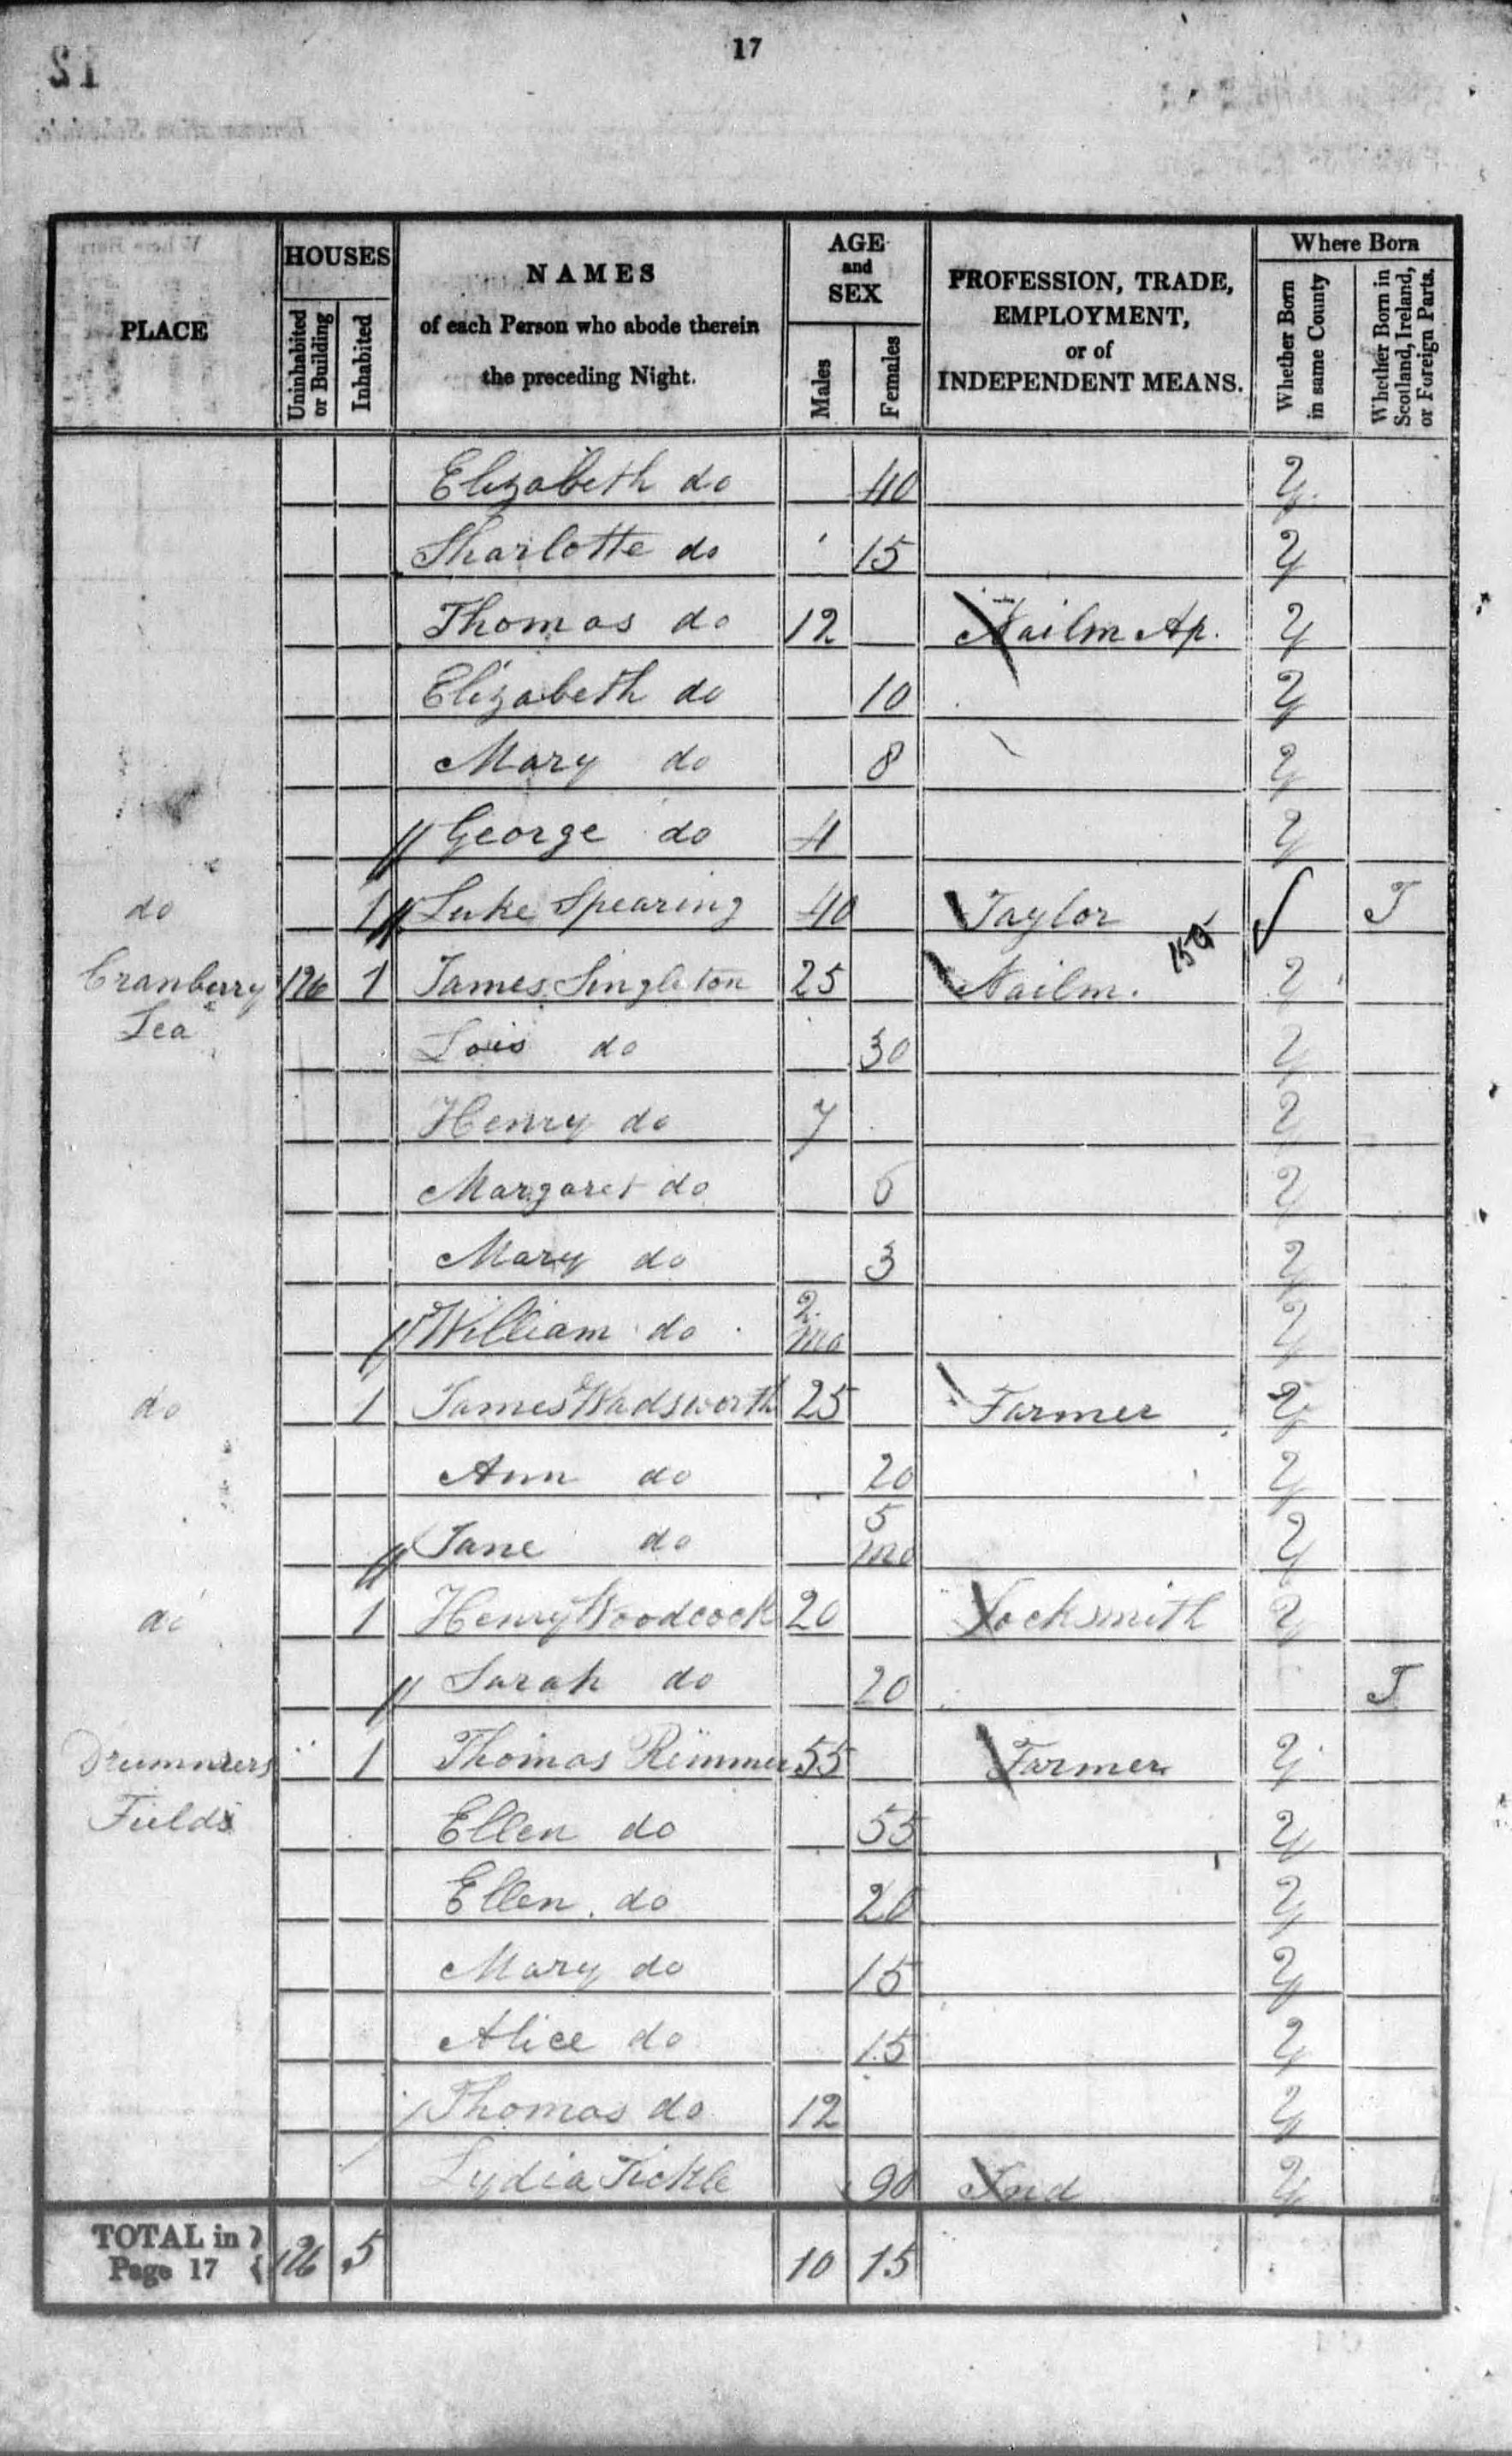 17
PLACE HOUSES NAMES of each Person who abode therein the preceding Night. AGE and SEX PROFESSION, TRADE, EMPLOYMENT, or of INDEPENDENT MEANS. Where Born
Uninhabited or Building Inhabited Males Females Whether Born in same County Whether Born in Scotland, Ireland, or Foreign Parts.
Elizabeth do 40 Y
Sharlotte do 15 Y
Thomas do 12 Nailm Ap. Y
Elizabeth do 10 Y
Mary do 8 Y
George do 4 Y
do 1 Luke Spearing 40 Taylor I
Cranberry Lea 1 James Singleton 25 Nailm. Y
Lois do 30 Y
Henry do 7 Y
Margaret do 6 Y
Mary do 3 Y
William do 2 mo Y
do 1 James Wadsworth 25 Farmer Y
Ann do 20 Y
Jane do 5 mo Y
do 1 Henry Woodcock 20 Locksmith Y
Sarah do 20 I
Drummers Fields 1 Thomas Rimmer 55 Farmer Y
Ellen do 55 Y
Ellen do 20 Y
Mary do 15 Y
Alice do 15 Y
Thomas do 12 Y
Lydia Tickle 90 Ind Y
TOTAL in Page 17 5 10 15